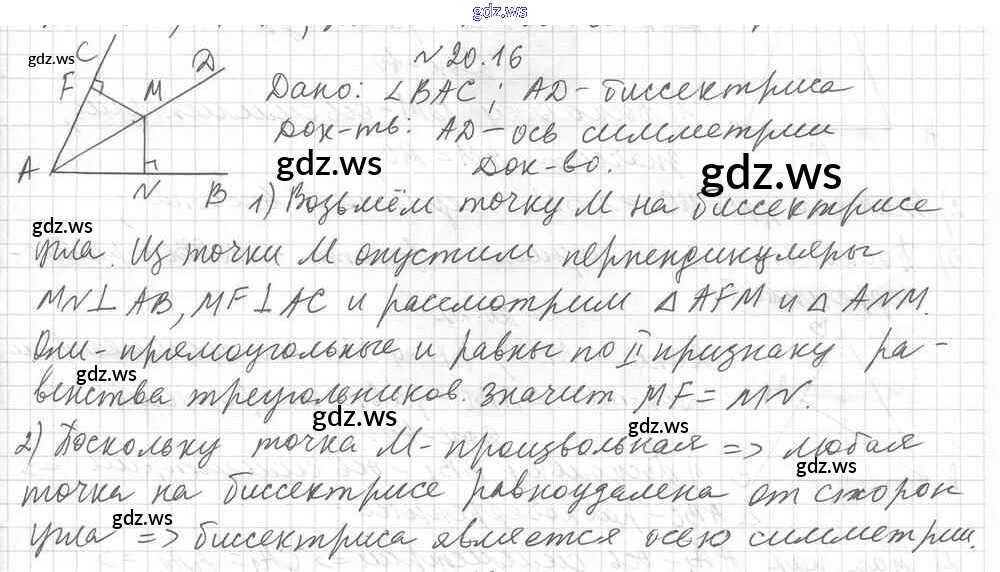 gdz.ws
№ 20.16
gdz.ws
C
F
M
D
A
N
B
Дано: ∠BAC; AD-биссектриса
Док-ть: AD-ось симметрии
Док-во.
gdz.ws
gdz.ws
1) Возьмём точку M на биссектрисе
gdz.ws
угла. Из точки M опустим перпендикуляры
MN⊥AB, MF⊥AC и рассмотрим △AFM и △ANM.
Они-прямоугольные и равны по II признаку ра-
gdz.ws
венства треугольников. значит MF=MN.
gdz.ws
gdz.ws
2) Поскольку точка M-произвольная => любая
gdz.ws
точка на биссектрисе равноудалена от сторон
gdz.ws
угла => биссектриса является осью симметрии.